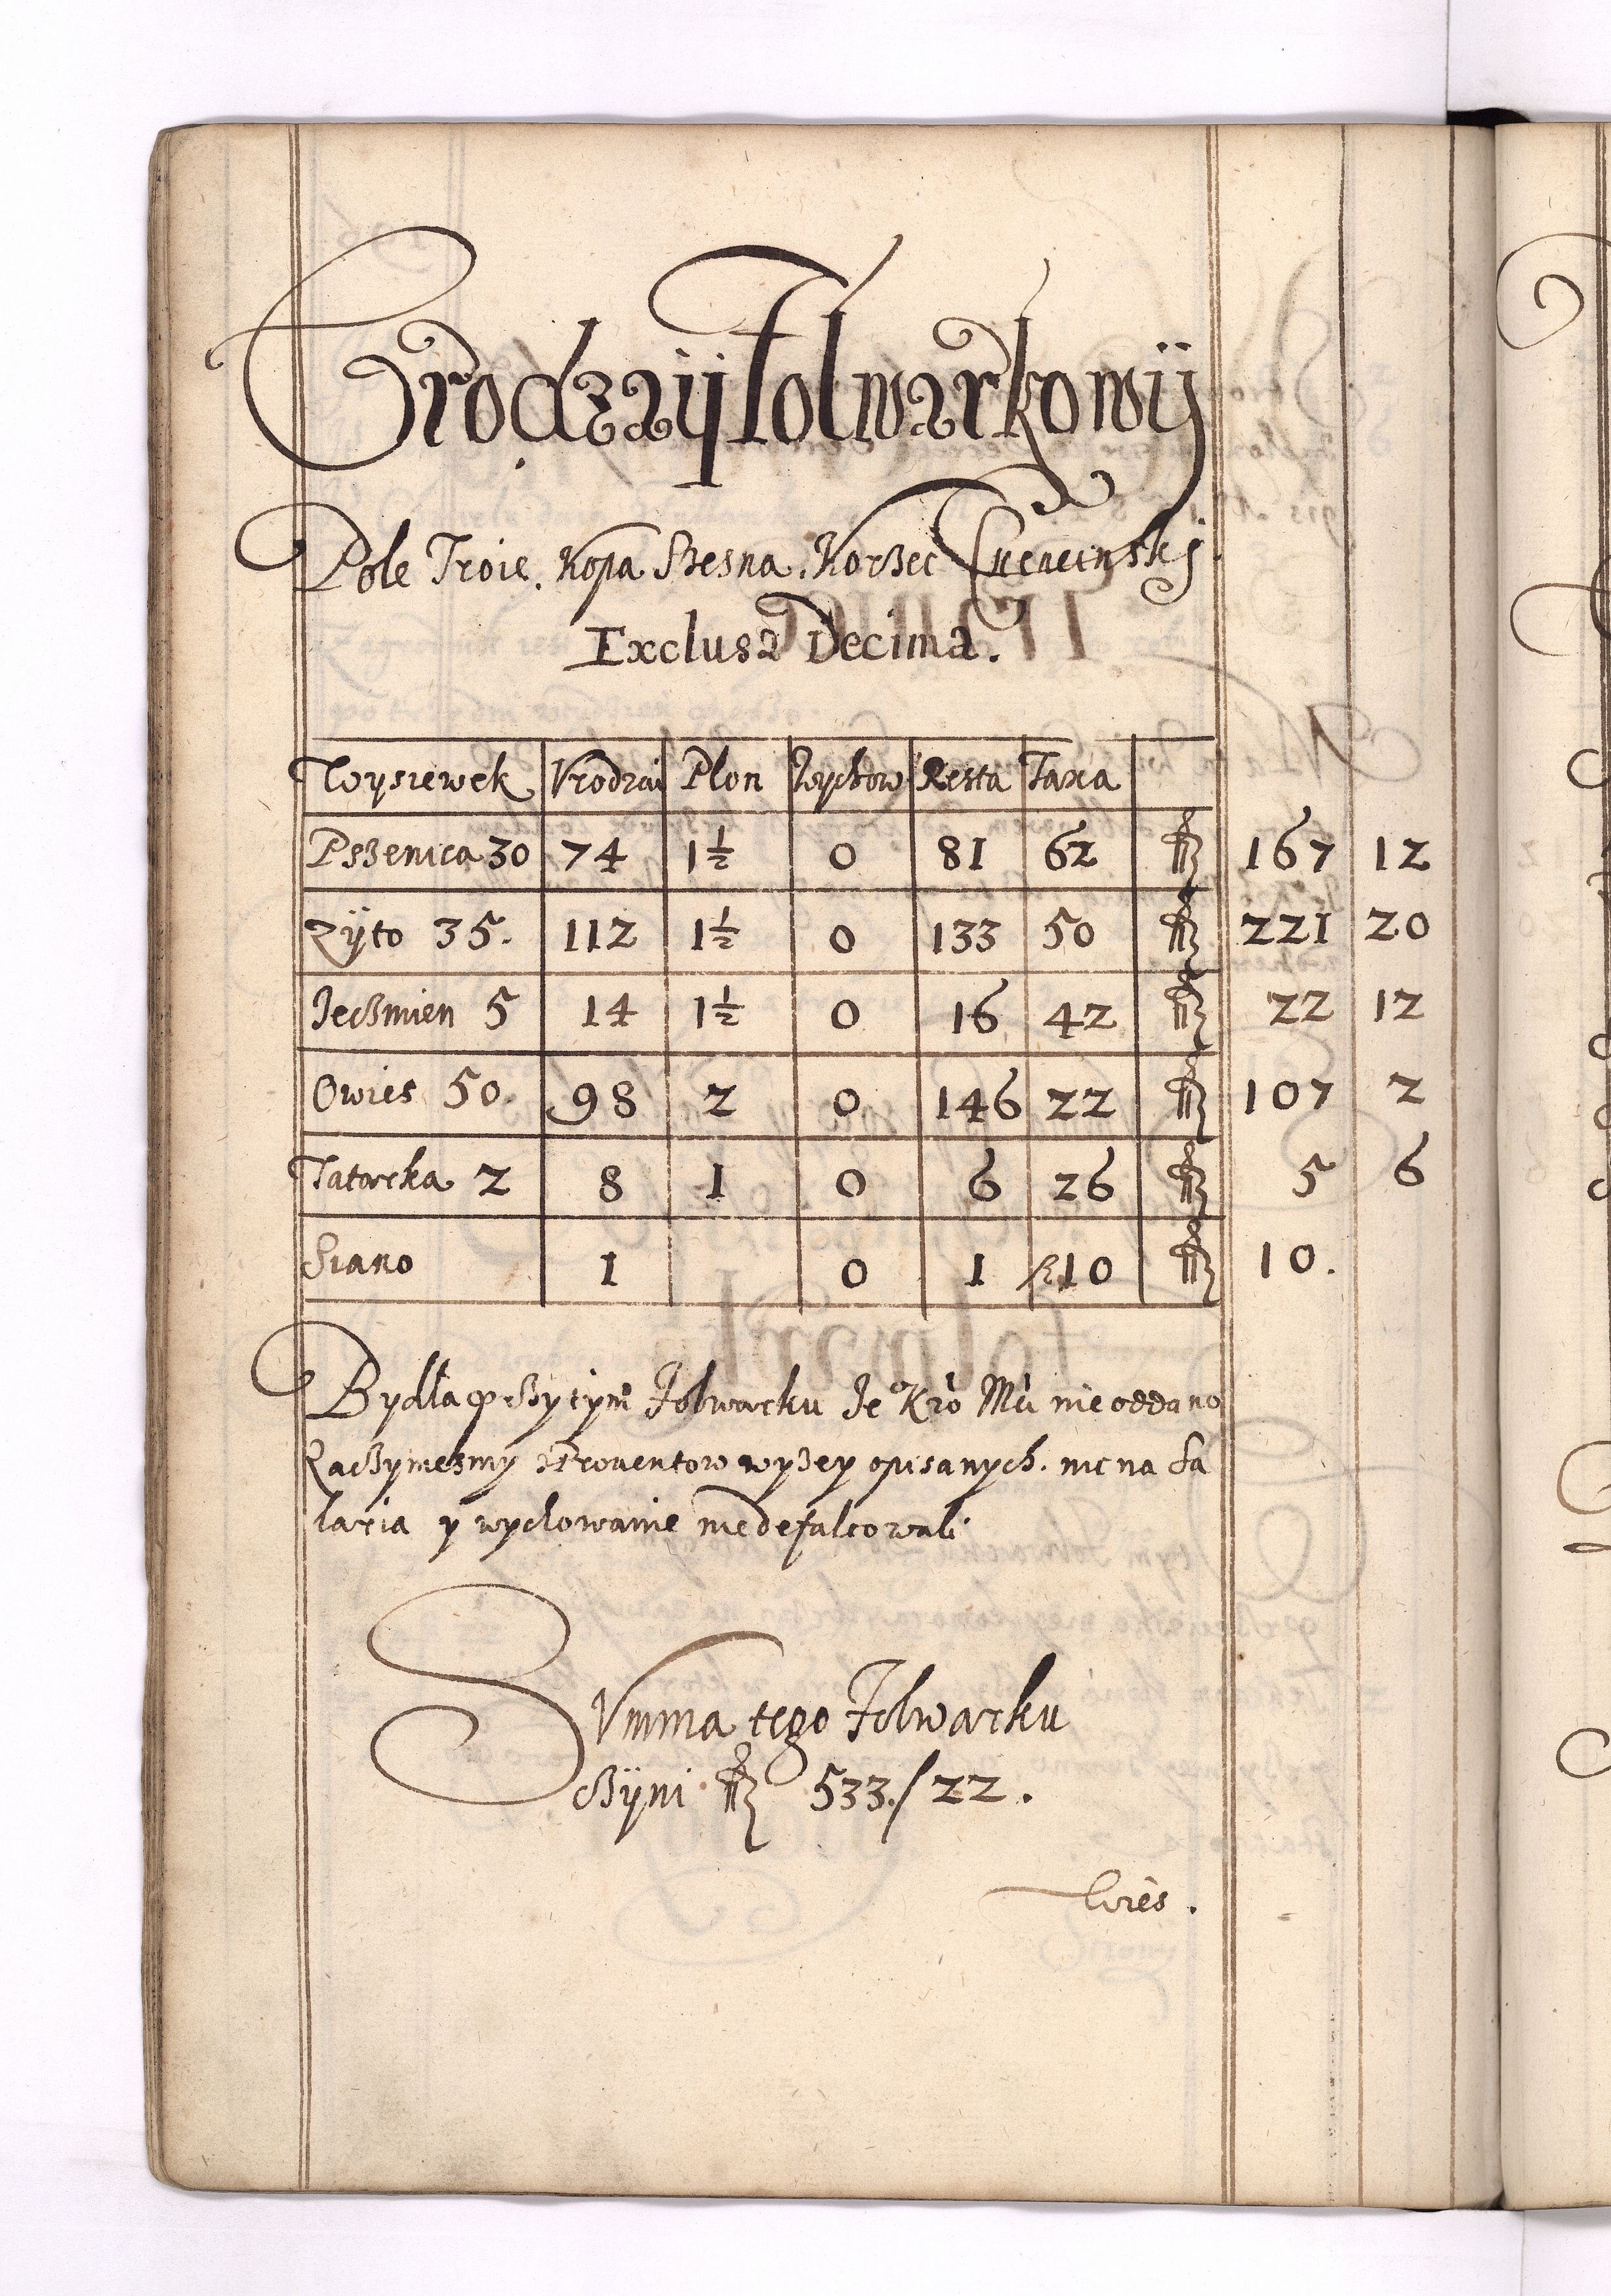 Vrodzaÿ folwarkowÿ
Pole Troie. Kopa Szesna. Korzec
Exclusa Decima.
Wysiewek Vrodzai Plon Wychow Resta Taxa
Pszenica 30 74 1½ 0 81 62 167 12
Zÿto 35. 112 1½ 0 133 50 221 20
Jeczmien 5 14 1½ 0 16 42 22 12
Owies 50. 98 2 0 146 22 107 2
Tatarka 2 8 1 0 6 26 5 6
Siano 1 0 1 10 10.
Bydła przy tym folwarku Je Kro Mci nie oddano
zaczymesmy z Prouentow wyzey opisanych. nic na Sa
laria y wychowanie nie defalcowali.
SVmma tego Folwarku
czÿni 533./22.
Wies.